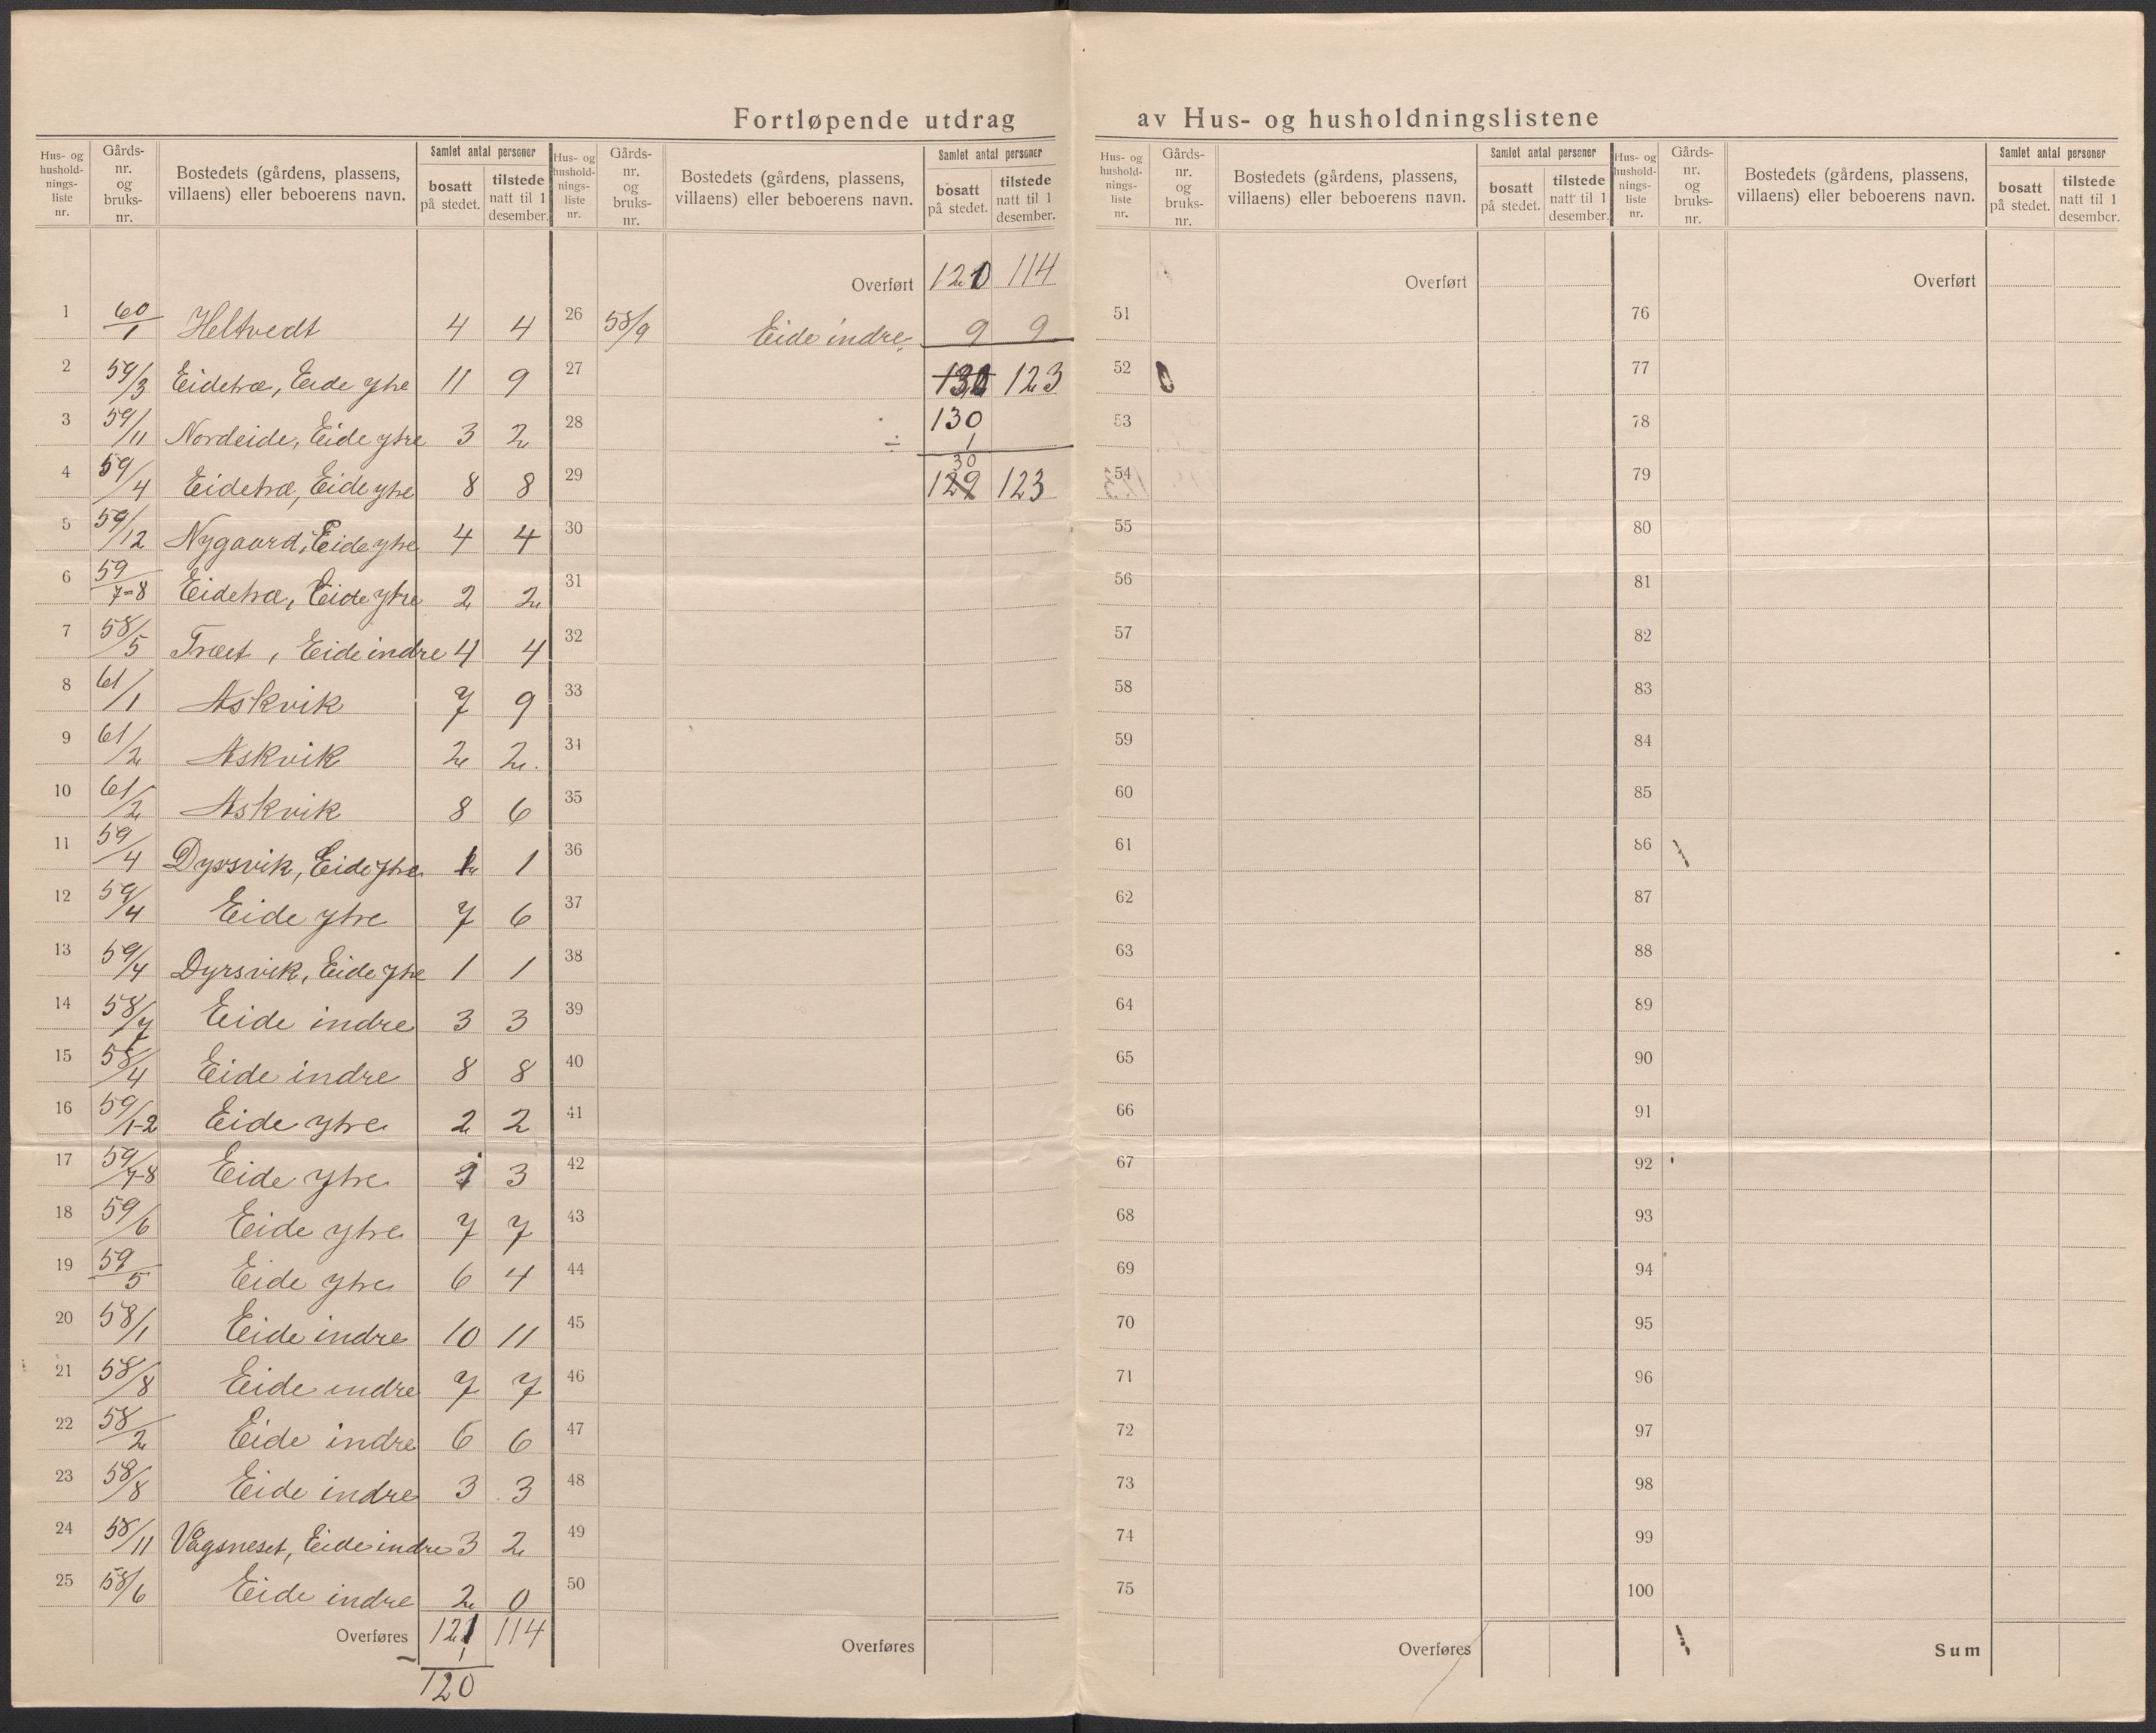 Fortløpende utdrag av Hus- og husholdningslistene
Hus- og hushold-nings-liste nr. | Gårds-nr. og bruks-nr. | Bostedets (gårdens, plassens, villaens) eller beboerens navn. | Samlet antal personer | bosatt på stedet. | tilstede natt til 1 desember.
1 60/1 Heltvedt 4 4
2 59/3 Eidetræ, Eide ytre 11 9
3 59/11 Nordeide, Eide ytre 3 2
4 59/4 Eidetræ, Eide ytre 8 8
5 59/12 Nygaard, Eide ytre 4 4
6 59/7=8 Eidetræ, Eide ytre 2 2
7 58/5 Træet, Eide indre 4 4
8 61/1 Askvik 7 9
9 61/2 Askvik 2 2
10 61/2 Askvik 8 6
11 59/4 Dyrsvik, Eide ytre 1
12 59/4 Eide ytre 7 6
13 59/4 Dyrsvik, Eide ytre 1 1
14 58/7 Eide indre 3 3
15 58/4 Eide indre 8 8
16 59/1-2 Eide ytre 2 2
17 59/7-8 Eide ytre 3
18 59/6 Eide ytre 7 7
19 59/5 Eide ytre 6 4
20 58/1 Eide indre 10 11
21 58/8 Eide indre 7 7
22 58/2 Eide indre 6 6
23 58/8 Eide indre 3 3
24 58/11 Vågsneset, Eide indre 3 2
25 58/6 Eide indre 2 0
Overføres 121 114
- 1
120
Hus- og hushold-nings-liste nr. | Gårds-nr. og bruks-nr. | Bostedets (gårdens, plassens, villaens) eller beboerens navn. | Samlet antal personer | bosatt på stedet. | tilstede natt til 1 desember.
Overført 120 114
26 58/9 Eide indre 9 9
27 123
28 130
÷ 1
30
29 129 123
30
31
32
33
34
35
36
37
38
39
40
41
42
43
44
45
46
47
48
49
50
Overføres
Hus- og hushold-nings-liste nr. | Gårds-nr. og bruks-nr. | Bostedets (gårdens, plassens, villaens) eller beboerens navn. | Samlet antal personer | bosatt på stedet. | tilstede natt til 1 desember.
Overført
51
52
53
54
55
56
57
58
59
60
61
62
63
64
65
66
67
68
69
70
71
72
73
74
75
Overføres
Hus- og hushold-nings-liste nr. | Gårds-nr. og bruks-nr. | Bostedets (gårdens, plassens, villaens) eller beboerens navn. | Samlet antal personer | bosatt på stedet. | tilstede natt til 1 desember.
Overført
76
77
78
79
80
81
82
83
84
85
86
87
88
89
90
91
92
93
94
95
96
97
98
99
100
Sum